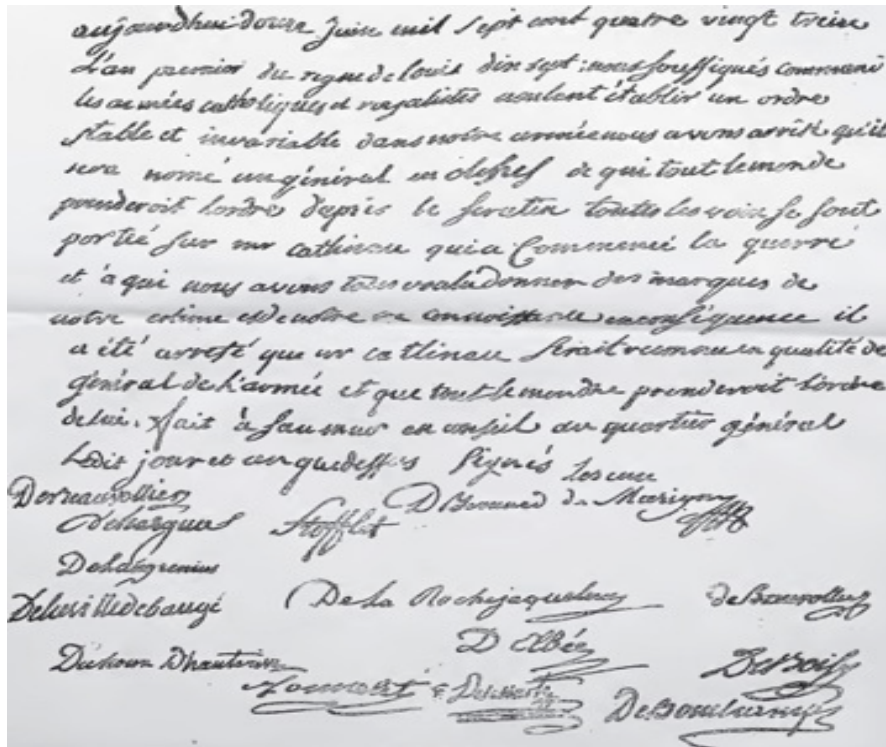 aujourdhui douze juin mil sept cent quatre vingt treize
L'an premier du regne de louis dix sept : nous soussignés commend
les armées catholiques et royalistes voulent établir un ordre
stable et invariable dans notre armée nous avons arrêté qu'il
sera nomé un général en cheffes de qui tout le monde
prenderoit lordre d'après le scrutin toutes les voix se sont
portté sur mr cathineau qui a Commencé la guerre
et à qui nous avons tous voulu donner des marques de
notre estime et de notre reconnoissance en conséquence il
a été arresté que mr cathineau serait reconnu en qualité de
général de l'armée et que tout le mondre prenderoit l'ordre
de lui. fait à saumur en conseil au quartier général
Ledit jour et an que dessus Signés
De beauvollier D Bernard de Marigny
dehargues Stofflet
Delaugrenière
De la ville de baugé De La Rochejaquelein de Beauvollier
D'Elbée
Duhoux D'hauterive Desessarts